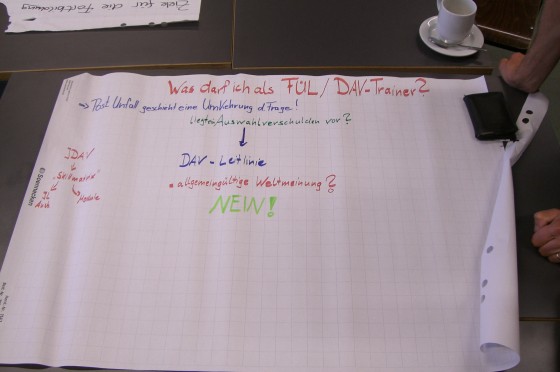 Ziele für die Fortbildung
Was darf ich als FÜL / DAV-Trainer?
→ Post Unfall geschieht eine Umkehrung d. Frage!
liegt ein Auswahlverschulden vor?
DAV - Leitlinie
• allgemeingültige Weltmeinung?
NEIN!
JDAV
Module